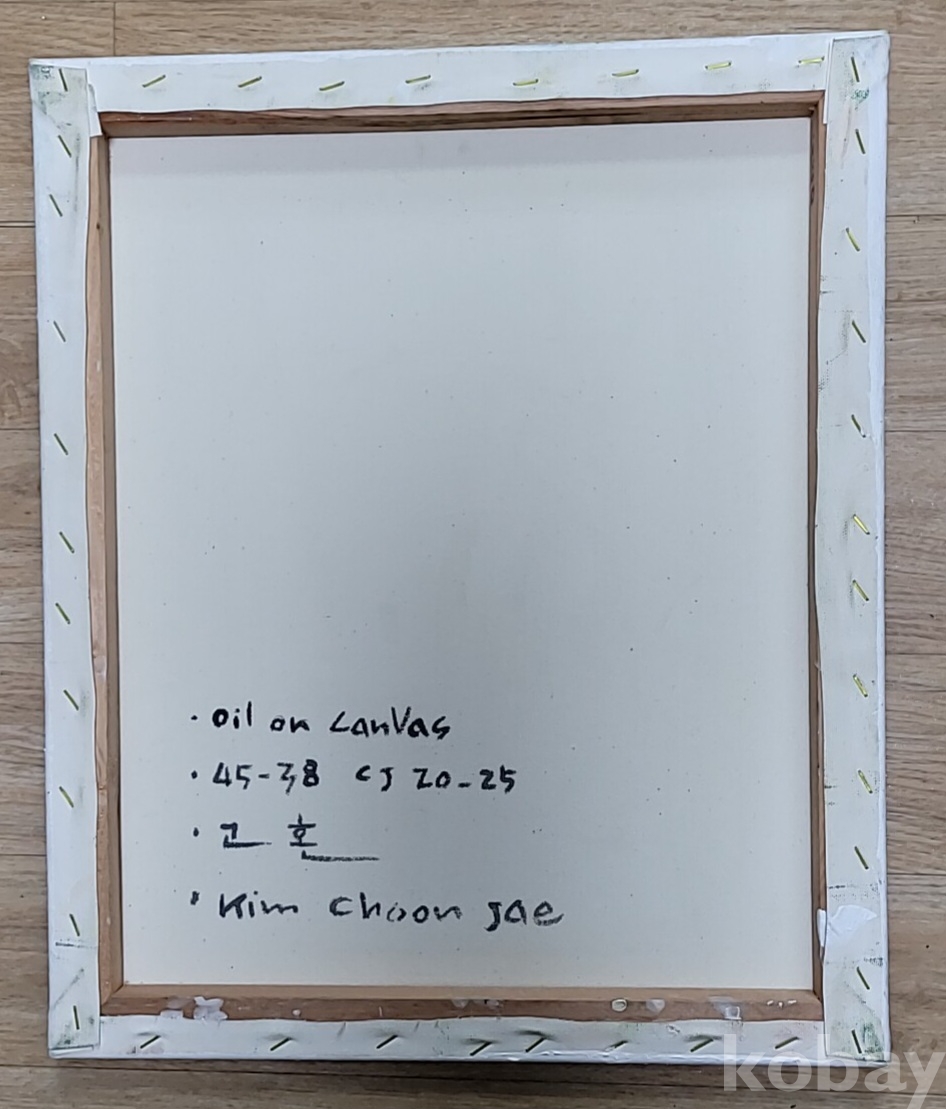 · oil on canvas
· 45-38 CJ 20-25
· 고 혼
· Kim Choon Jae
kobay